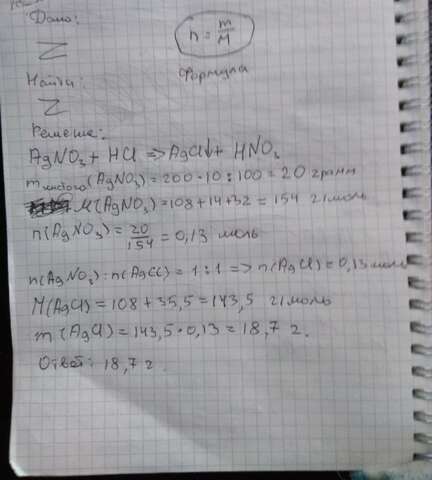 Дано:
n = m/M
Формула
Z
Найти:
Z
Решение:
AgNO₃ + HCl => AgCl↓ + HNO₃
m чистого (AgNO₃) = 200 · 10 : 100 = 20 грамм
M(AgNO₃) = 108 + 14 + 32 = 154 г/моль
n(AgNO₃) = 20/154 = 0,13 моль
n(AgNO₃) : n(AgCl) = 1 : 1 => n(AgCl) = 0,13 моль
M(AgCl) = 108 + 35,5 = 143,5 г/моль
m(AgCl) = 143,5 · 0,13 = 18,7 г.
Ответ: 18,7 г.